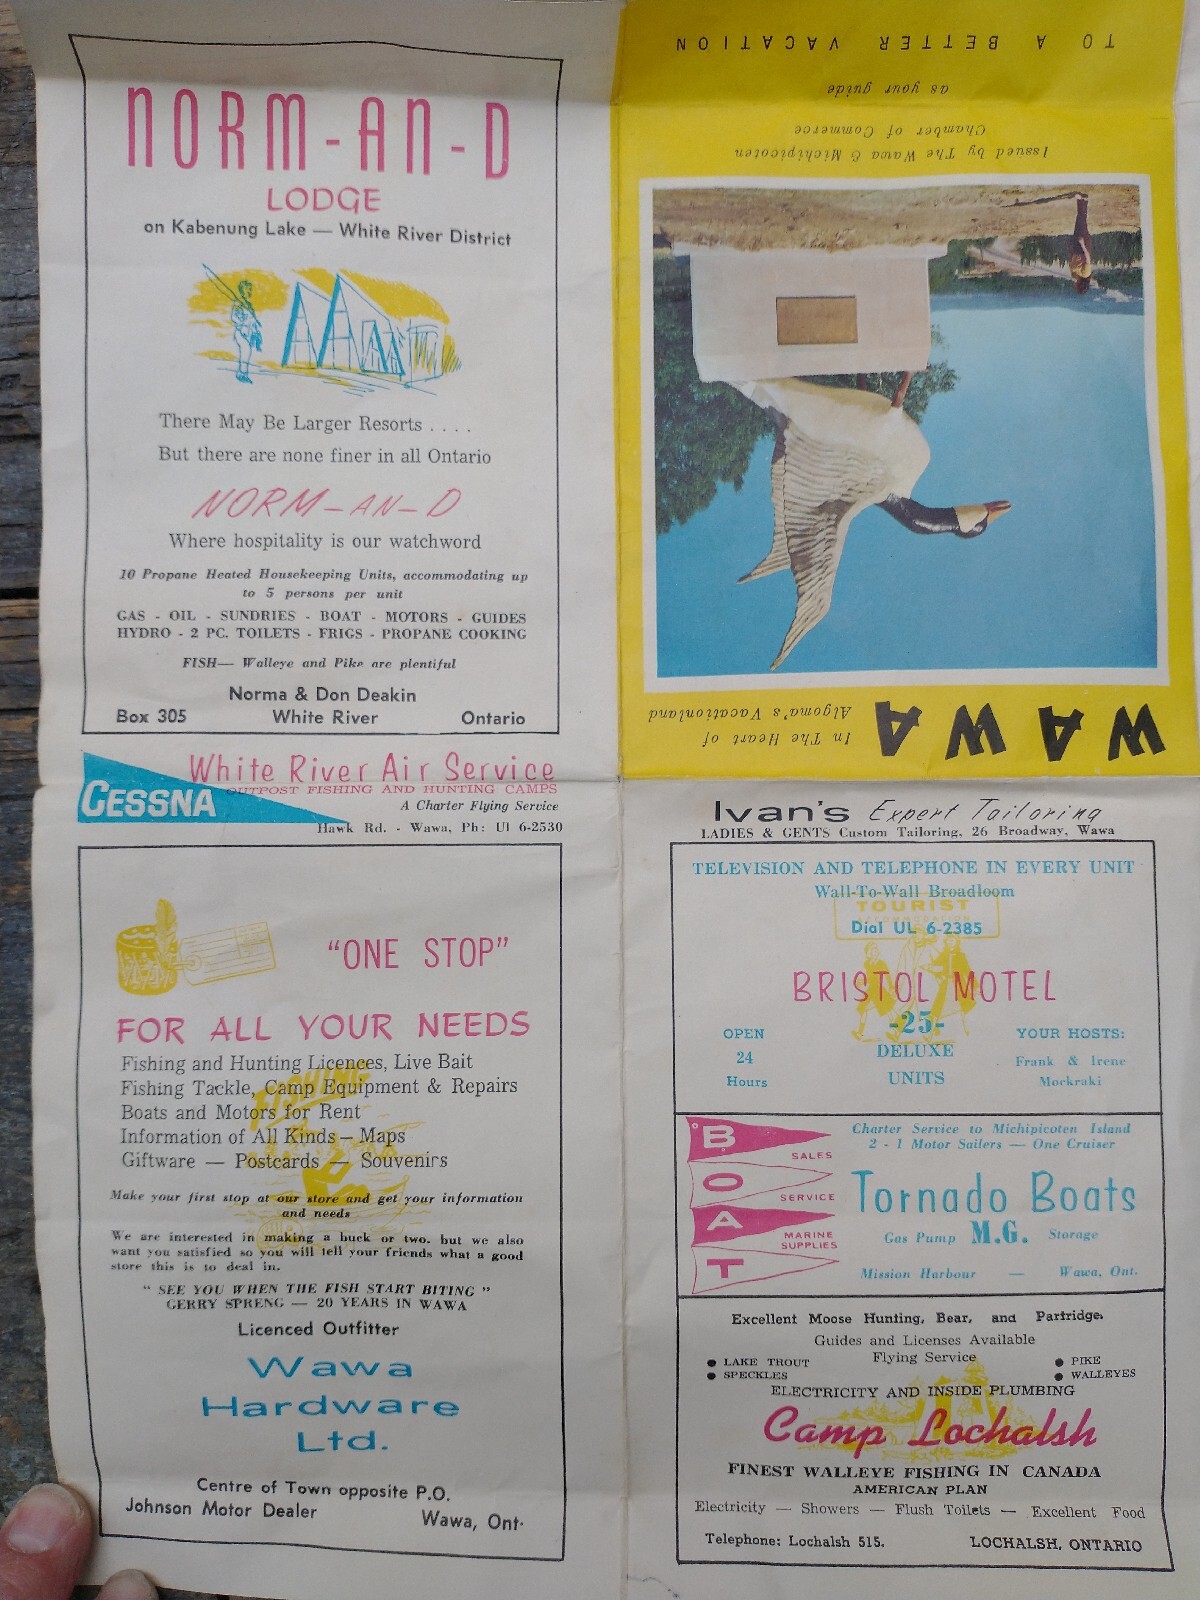 NORM-AN-D
LODGE
on Kabenung Lake — White River District
There May Be Larger Resorts . . . .
But there are none finer in all Ontario
NORM-AN-D
Where hospitality is our watchword
10 Propane Heated Housekeeping Units, accommodating up
to 5 persons per unit
GAS - OIL - SUNDRIES - BOAT - MOTORS - GUIDES
HYDRO - 2 PC. TOILETS - FRIGS - PROPANE COOKING
FISH— Walleye and Pike are plentiful
Norma & Don Deakin
Box 305 White River Ontario
CESSNA
White River Air Service
OUTPOST FISHING AND HUNTING CAMPS
A Charter Flying Service
Hawk Rd. - Wawa, Ph: Ul 6-2530
"ONE STOP"
FOR ALL YOUR NEEDS
Fishing and Hunting Licences, Live Bait
Fishing Tackle, Camp Equipment & Repairs
Boats and Motors for Rent
Information of All Kinds — Maps
Giftware — Postcards — Souvenirs
FISHING
Make your first stop at our store and get your information
and needs
We are interested in making a buck or two. but we also
want you satisfied so you will tell your friends what a good
store this is to deal in.
" SEE YOU WHEN THE FISH START BITING "
GERRY SPRENG — 20 YEARS IN WAWA
Licenced Outfitter
Wawa
Hardware
Ltd.
Centre of Town opposite P.O.
Johnson Motor Dealer Wawa, Ont.
WAWA
In The Heart of
Algoma's Vacationland
Issued by The Wawa & Michipicoten
Chamber of Commerce
as your guide
TO A BETTER VACATION
Ivan's Expert Tailoring
LADIES & GENTS Custom Tailoring, 26 Broadway, Wawa
TELEVISION AND TELEPHONE IN EVERY UNIT
Wall-To-Wall Broadloom
TOURIST
ACCOMMODATION
Dial UL 6-2385
BRISTOL MOTEL
OPEN
24
Hours
-25-
DELUXE
UNITS
YOUR HOSTS:
Frank & Irene
Mockraki
BOAT
SALES
SERVICE
MARINE
SUPPLIES
Charter Service to Michipicoten Island
2 - 1 Motor Sailers — One Cruiser
Tornado Boats
Gas Pump M.G. Storage
Mission Harbour — Wawa, Ont.
Excellent Moose Hunting, Bear, and Partridge.
Guides and Licenses Available
Flying Service
● LAKE TROUT
● SPECKLES
● PIKE
● WALLEYES
ELECTRICITY AND INSIDE PLUMBING
Camp Lochalsh
FINEST WALLEYE FISHING IN CANADA
AMERICAN PLAN
Electricity — Showers — Flush Toilets — Excellent Food
Telephone: Lochalsh 515. LOCHALSH, ONTARIO